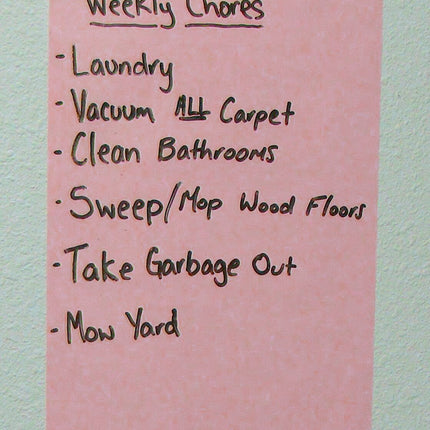 Weekly Chores
- Laundry
- Vacuum ALL Carpet
- Clean Bathrooms
- Sweep/Mop Wood Floors
- Take Garbage Out
- Mow Yard